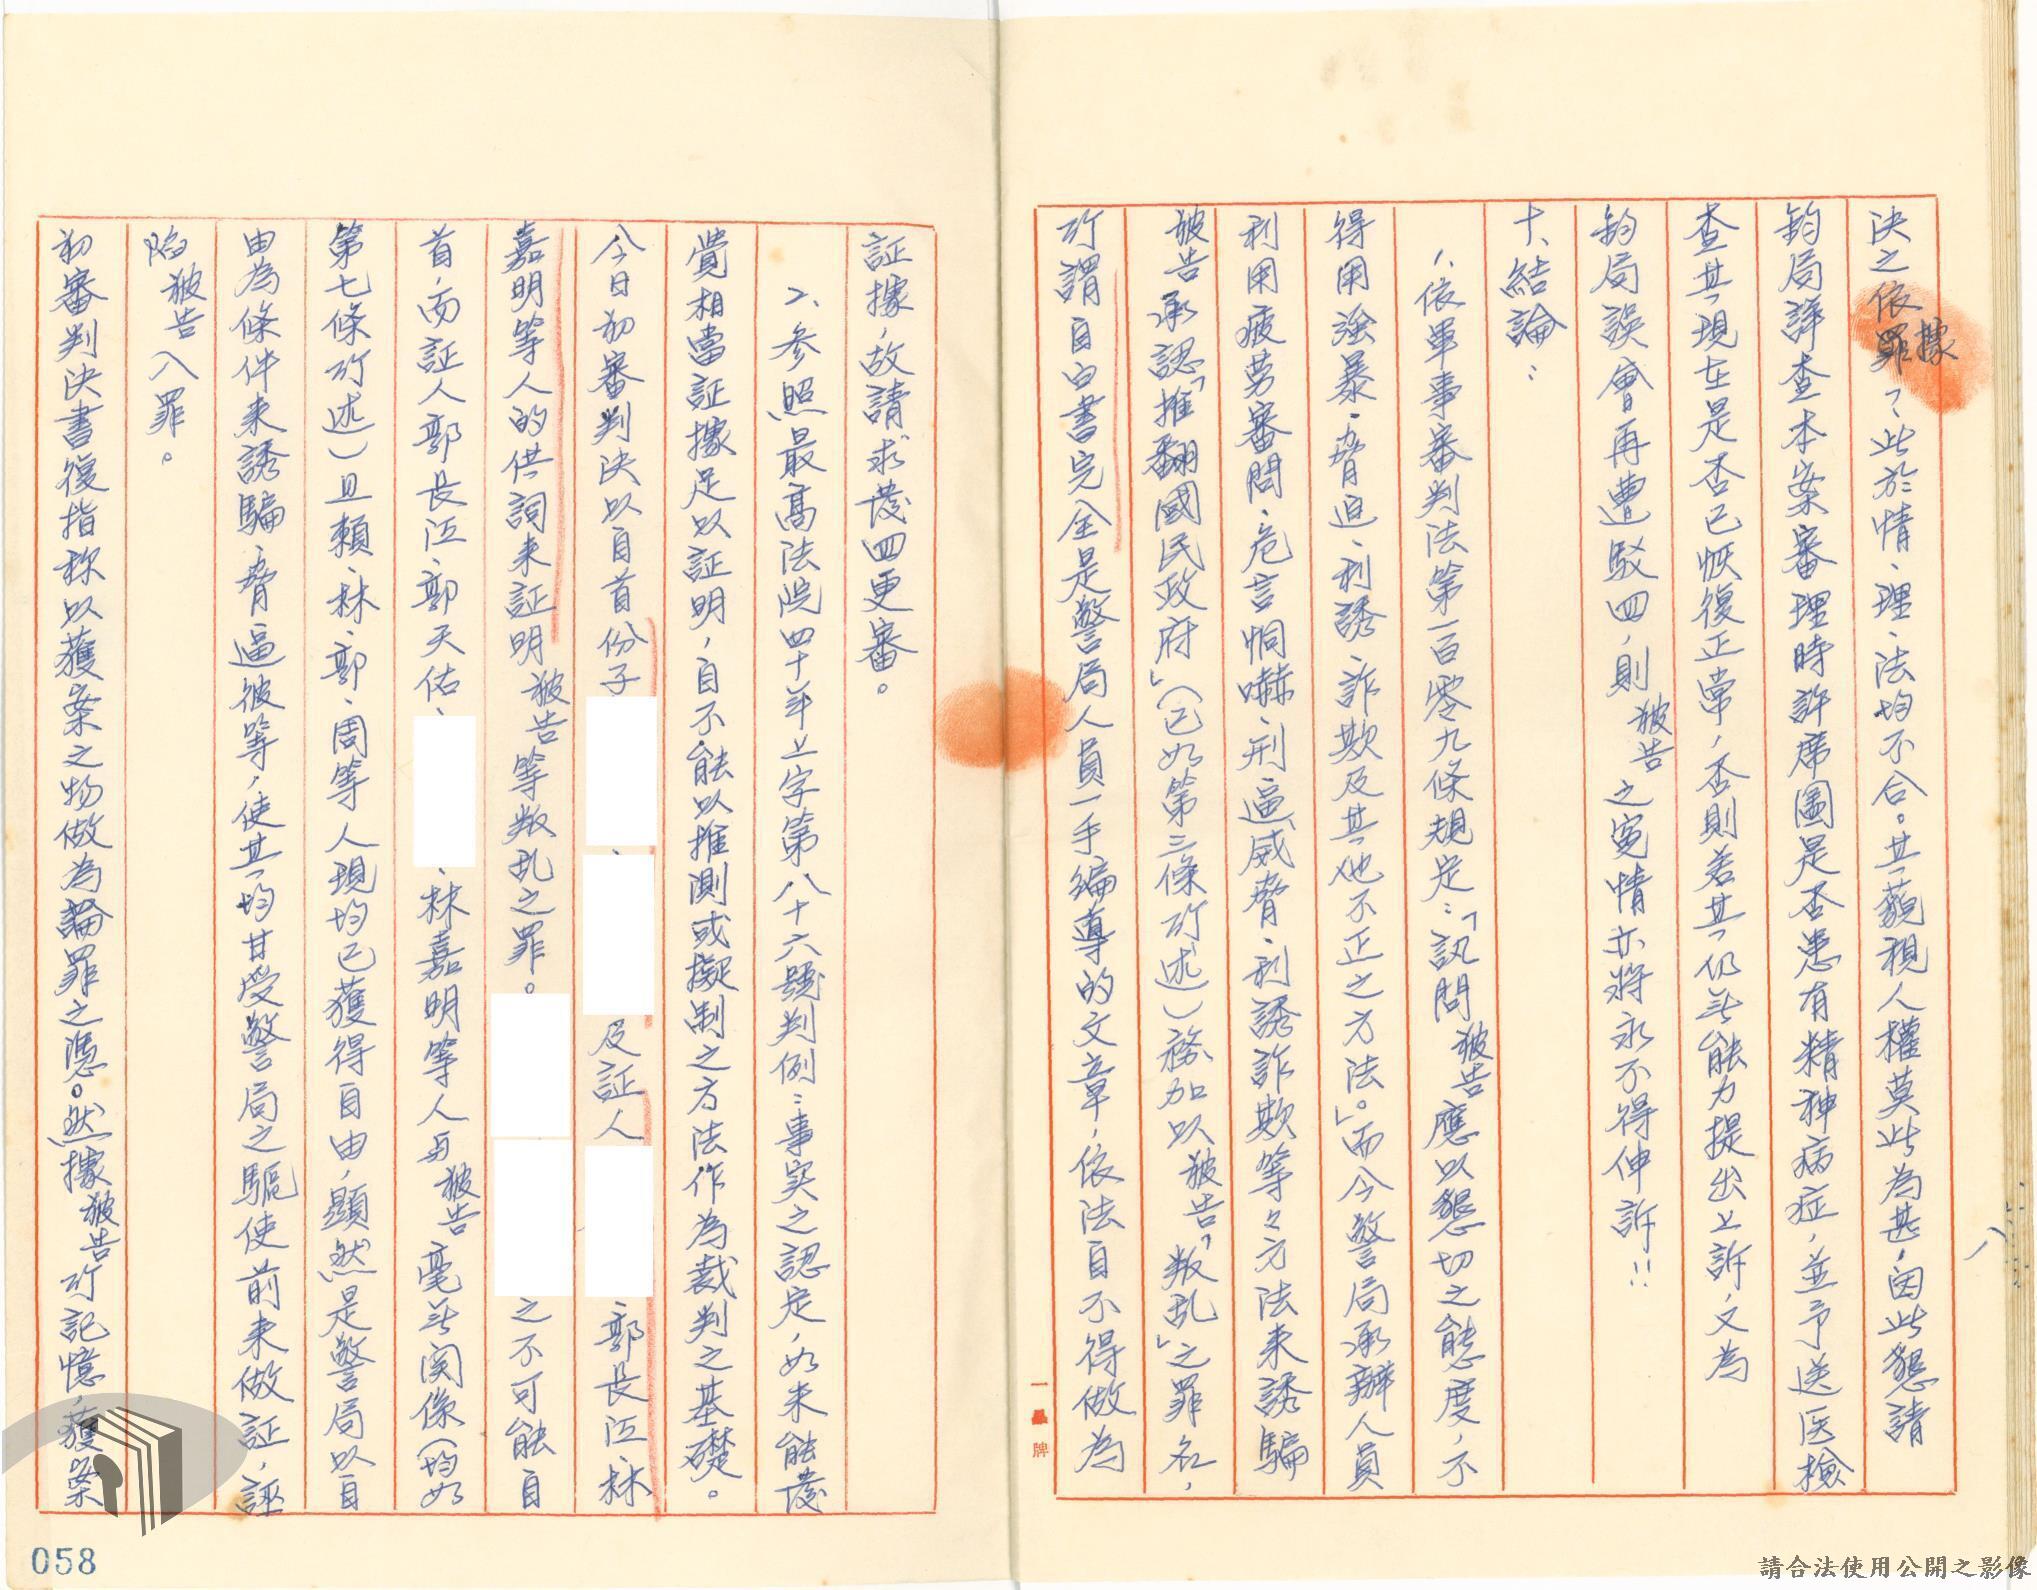 決之依據」，此於情、理、法均不合。其藐視人權莫此為甚，因此懇請
鈞局詳查本案審理時許席圖是否患有精神病症，並予送医檢
查其現在是否已恢復正常，否則若其仍無能力提出上訴，又為
鈞局誤會再遭駁回，則被告之冤情亦將永不得伸訴!!
十、結論：
1、依軍事審判法第一百零九條規定：「訊問被告應以懇切之態度，不
得用強暴、脅迫、利誘、詐欺及其他不正之方法。」而今警局承辦人員
利用疲勞審問、危言恫嚇、刑逼威脅、利誘詐欺等々方法來誘騙
被告承認「推翻國民政府」（已如第三條所述）務加以被告「叛乱」之罪名，
所謂自白書完全是警局人員一手編導的文章，依法自不得做為
証據，故請求發回更審。
2、參照最高法院四十年上字第八十六號判例：事实之認定，如未能發
覺相當証據足以証明，自不能以推測或擬制之方法作為裁判之基礎。
今日初審判決以自首份子、及証人、郭長江、林
嘉明等人的供詞來証明被告等叛乱之罪。之不可能自
首，而証人郭長江、郭天佑、、林嘉明等人与被告毫無関係（均如
第七條所述）且賴、林、郭、周等人現均已獲得自由，顯然是警局以自
由為條件來誘騙、脅逼彼等，使其均甘受警局之驅使前來做証，誣
陷被告入罪。
初審判決書復指称以獲案之物做為論罪之憑。然據被告所記憶，獲案
一牌
058
請合法使用公開之影像